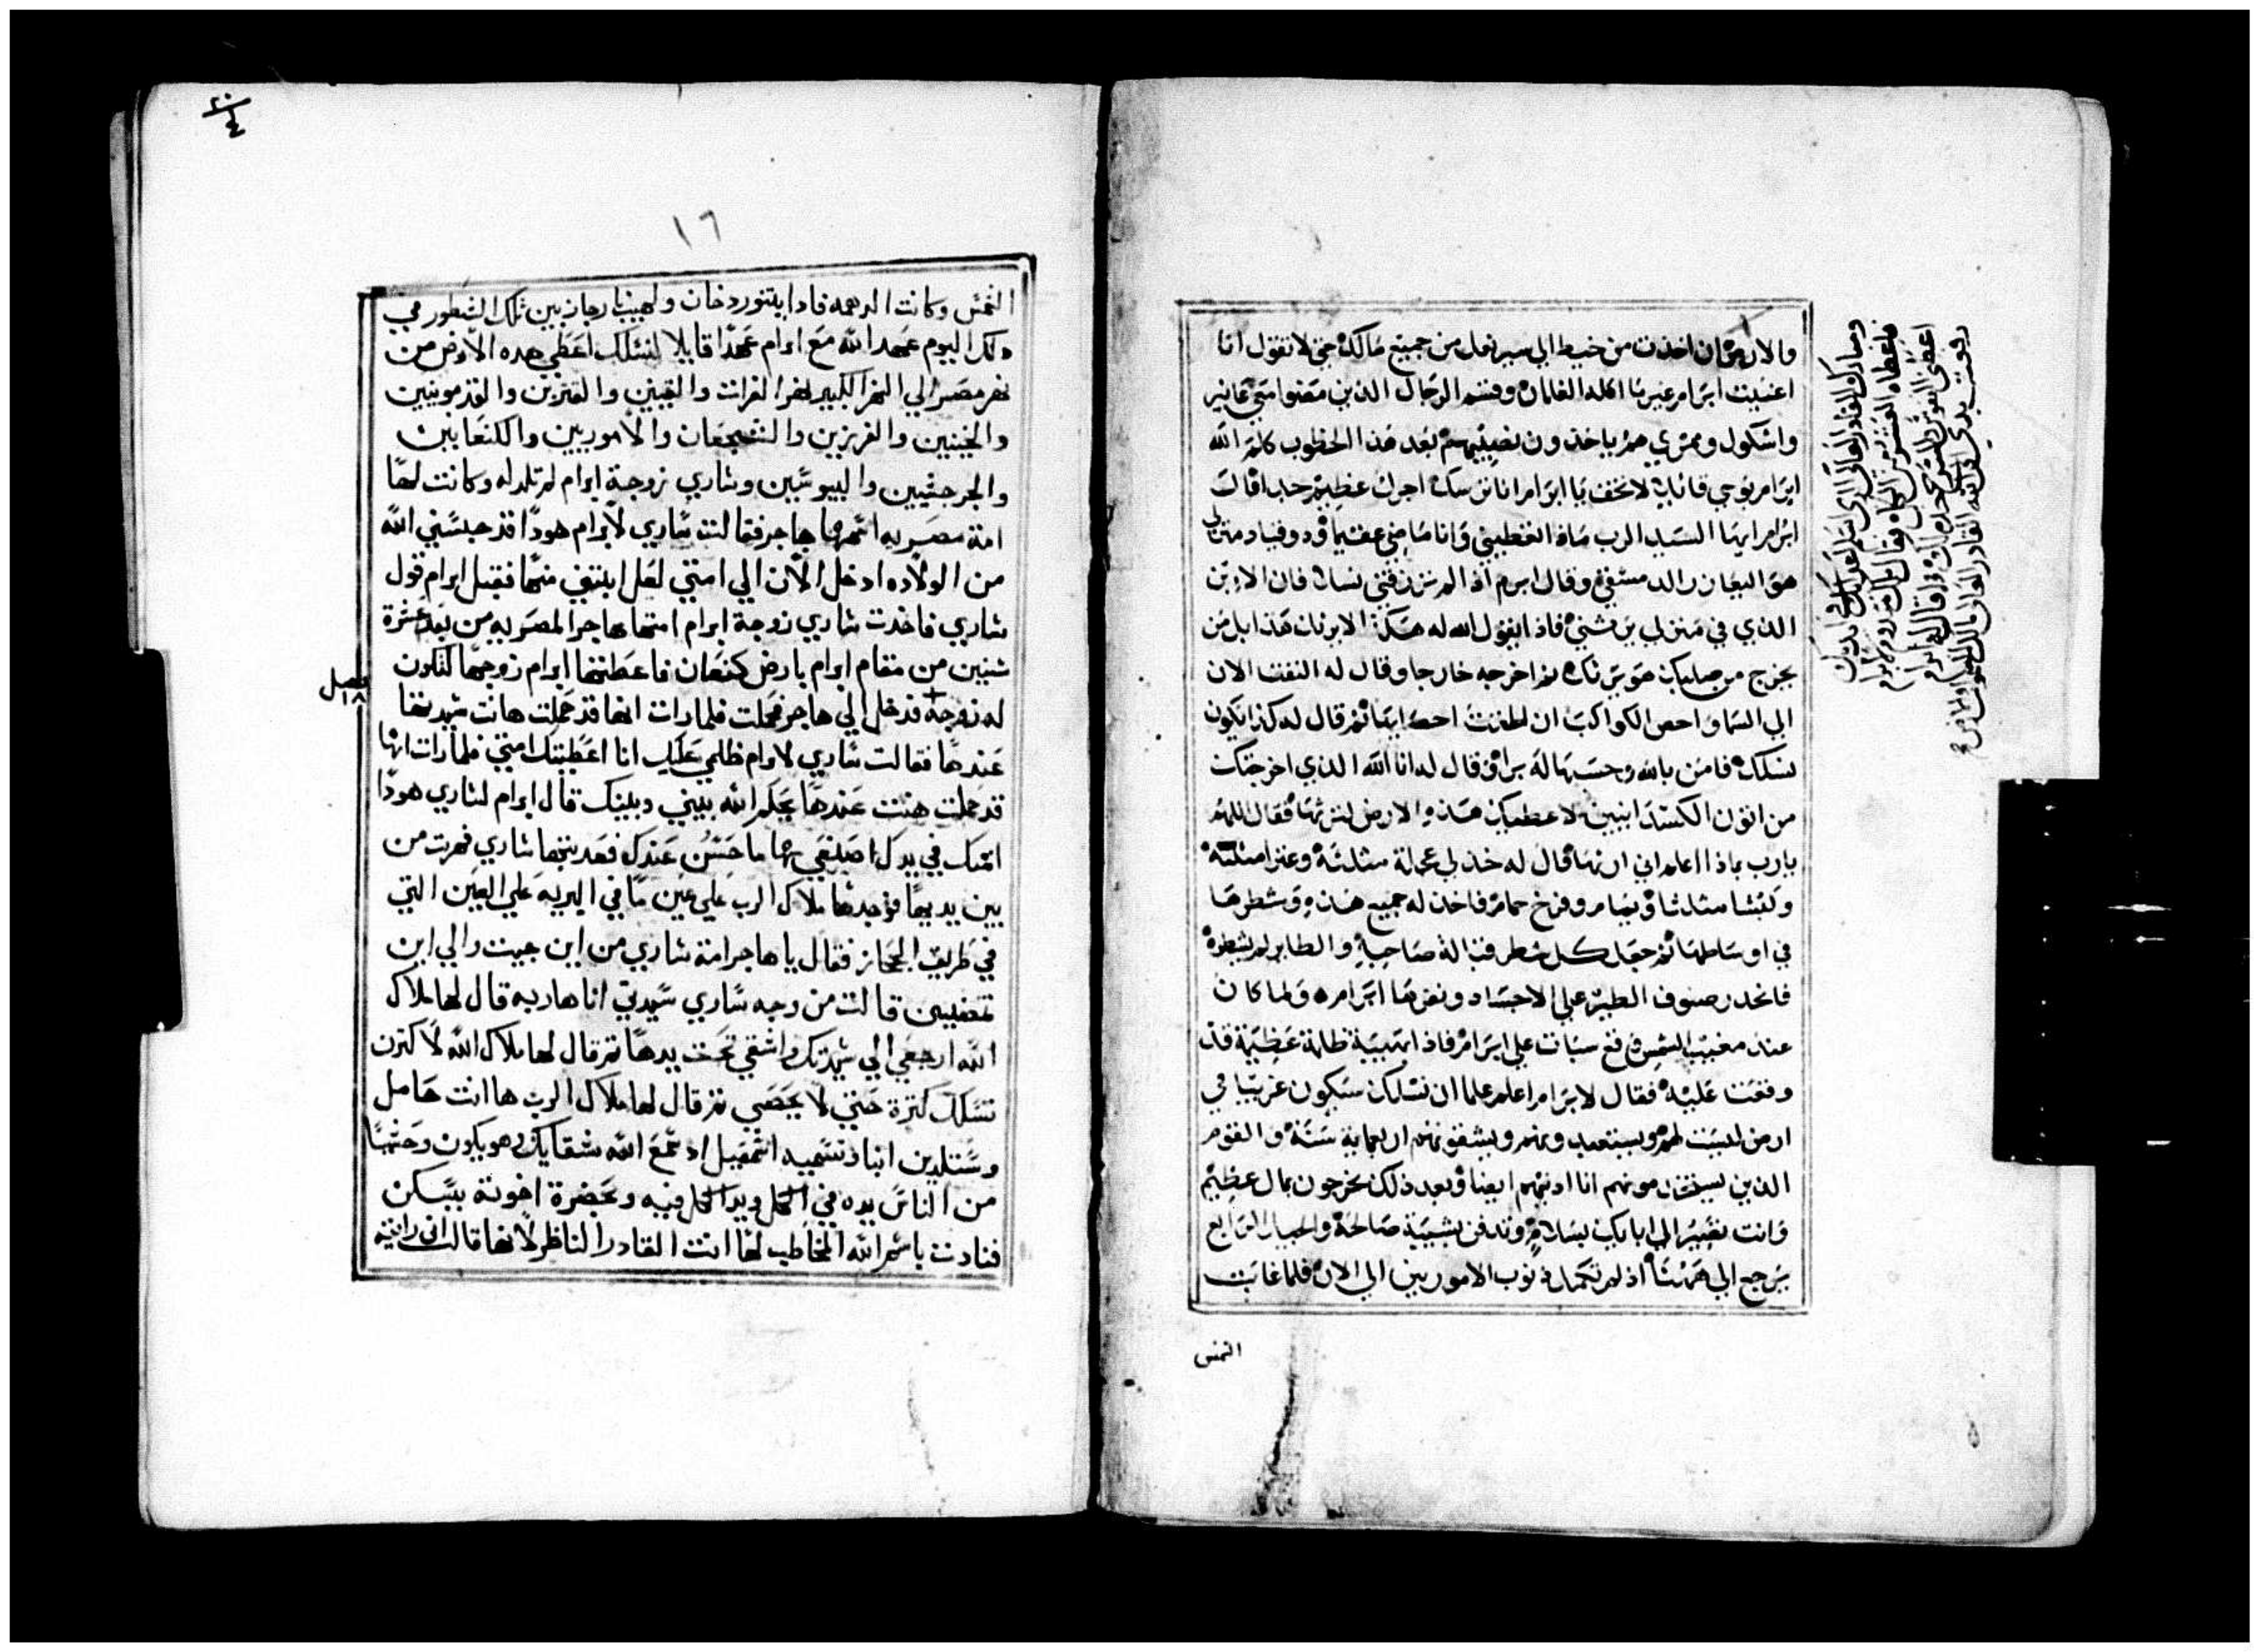 والارض ان اخذت من خيط الي سير نعل من جميع مالك حتي لا تقول انا
اغنيت ابرام غير ما اكله الغلمان وقسم الرجال الذين مضوا معي عانير
واشكول وممري هم ياخذون نصيبهم بعد هذا الخطوب كلم الله
ابرام بوحي قايلا لا تخف يا ابرام انا ترسك اجرك عظيم جدا قال
ابرام ايها السيد الرب ماذا تعطيني وانا ماضي عقيما وذو قياد منزلي
هو اليعازر الدمشقي وقال ابرم اذ لم ترزقني نسلا فان الابن
الذي في منزلي يرثني فاذا بقول الله له هكذا لا يرثك هذا بل من
يخرج من صلبك هو يرثك ثم اخرجه خارجا وقال له التفت الان
الي السما واحص الكواكب ان اطقت احصايها ثم قال له كذا يكون
نسلك فامن بالله وحسبها له برا ثم قال له انا الله الذي اخرجتك
من اتون الكسدانيين لاعطيك هذه الارض لترثها فقال اللهم
يا رب بماذا اعلم اني ارثها قال له خذ لي عجلة مثلثة وعنزا مثلثة
وكبشا مثلثا ويمام وفرخ حمام فاخذ له جميع هذه وشطرها
في اوساطها ثم جعل كل شطر قبالة صاحبه والطاير لم يشطره
فانحدر صنوف الطير علي الاجساد ونفرها ابرامره ولما كان
عند مغيب الشمس وقع سبات علي ابرام فاذا بهيبة ظلمة عظيمة قد
وقعت عليه فقال لابرام اعلم علما ان نسلك سيكون غريبا في
ارض ليست لهم ويستعبدونهم ويشقونهم اربعماية سنة والقوم
الذين يستخدمونهم انا ادينهم ايضا وبعد ذلك يخرجون بمال عظيم
وانت تصير الي ابايك بسلام وتدفن بشيبة صالحة والجيل الرابع
يرجع الي ههنا اذ لم تكمل ذنوب الاموريين الي الان فلما غابت
الشمس
١٦
الشمس وكانت الدهمه فاذا بتنور دخان ولهيب نار جاز بين تلك الشطور في
ذلك اليوم عهد الله مع ابرام عهدا قايلا لنسلك اعطي هده الارض من
نهر مصر الي النهر الكبير نهر الفرات والقينين والقنزيين والقذمونيين
والحيثيين والفرزيين والشجعان والاموريين والكنعانيين
والجرجشيين واليبوسيين وساري زوجة ابرام لم تلد له وكانت لها
امة مصريه اسمها هاجر فقالت ساري لابرام هوذا قد حبسني الله
من الولاده ادخل الان الي امتي لعل ابتني منها فقبل ابرام قول
ساري فاخذت ساري زوجة ابرام امتها هاجر المصريه من بعد عشرة
سنين من مقام ابرام بارض كنعان فاعطتها ابرام زوجها لتكون
له زوجة فدخل الي هاجر فحملت فلما رات انها قد حملت هانت سيدتها
فصل ١٨
عندها فقالت ساري لابرام ظلمي عليك انا اعطيتك امتي فلما رات انها
قد حملت هنت عندها يحكم الله بيني وبينك قال ابرام لساري هوذا
امتك في يدك اصنعي بها ما حسن عندك فعدبتها ساري فهربت من
بين يديها فوجدها ملاك الرب علي عين ما في البريه علي العين التي
في طريق الحجاز فقال يا هاجر امة ساري من اين جيت والي اين
تمضيين قالت من وجه ساري سيدتي انا هاربه قال لها ملاك
الله ارجعي الي سيدتك واشقي تحت يدها ثم قال لها ملاك الله لاكثرن
نسلك كثرة حتي لا يحصي ثم قال لها ملاك الرب ها انت حامل
وستلدين ابنا وتسميه اسمعيل اذ سمع الله شقايك وهو يكون وحشيا
من الناس يده في الكل ويد الكل فيه وبحضرة اخوته يسكن
فنادت باسم الله المخاطب لها انت القادر الناظر لانها قالت اني رايته